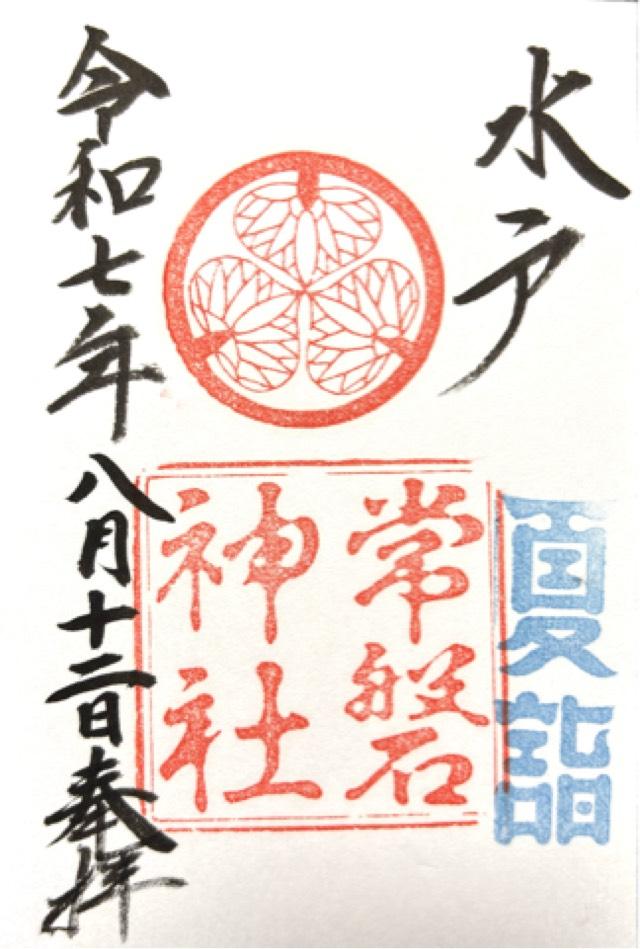 水戸
夏詣
常磐
神社
令和七年八月十二日奉拝